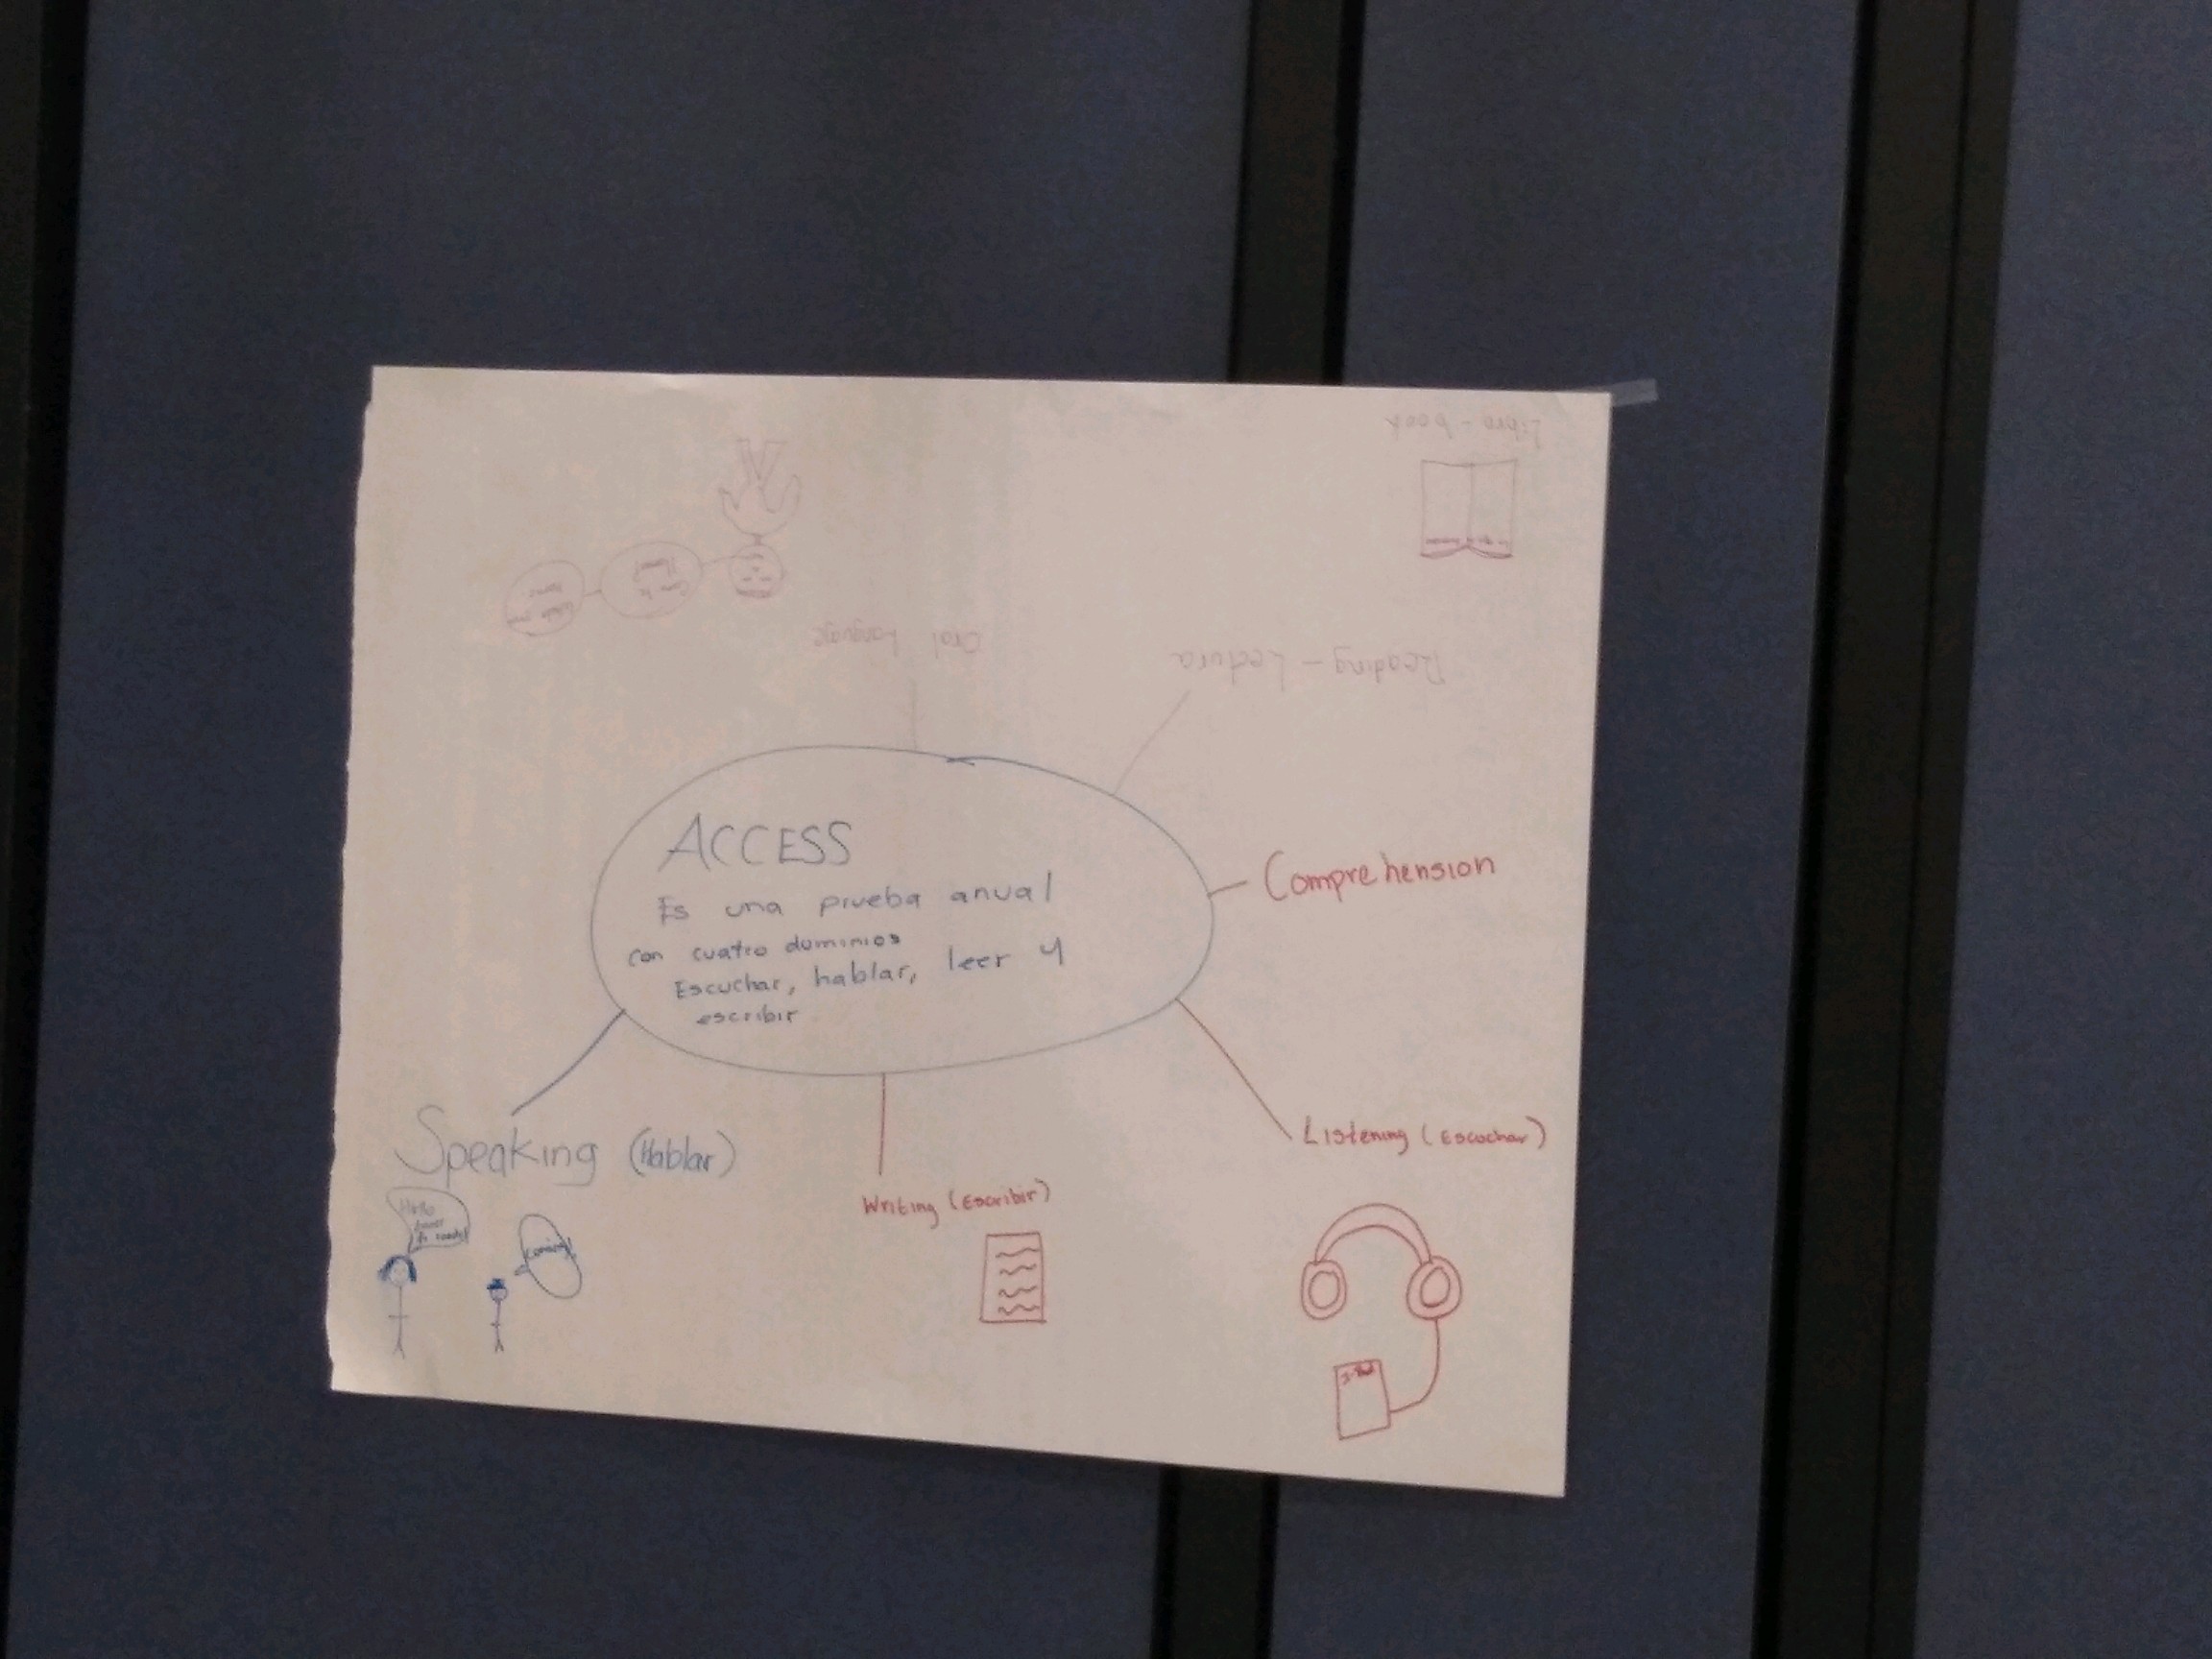 Libro - book
Oral Language
Reading - Lectura
ACCESS
Es una prueba anual
con cuatro dominios
Escuchar, hablar, leer y
escribir
Comprehension
Speaking (Hablar)
Hello
Writing (Escribir)
Listening (Escuchar)